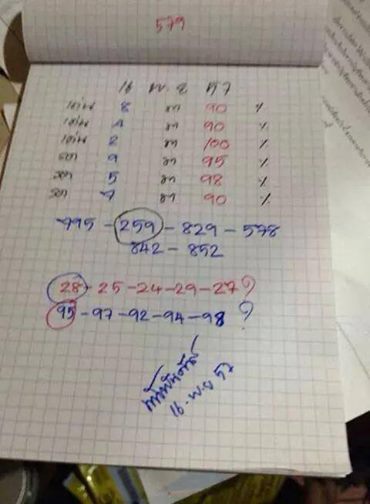 579
16 พ.ย 57
เด่น 8 มา 90 %
เด่น 4 มา 90 %
เด่น 2 มา 100 %
รอง 9 มา 95 %
รอง 5 มา 98 %
รอง 7 มา 90 %
795 - 259 - 829 - 578
842 - 852
28 - 25 - 24 - 29 - 27 ?
95 - 97 - 92 - 94 - 98 ?
16 - พ.ย 57